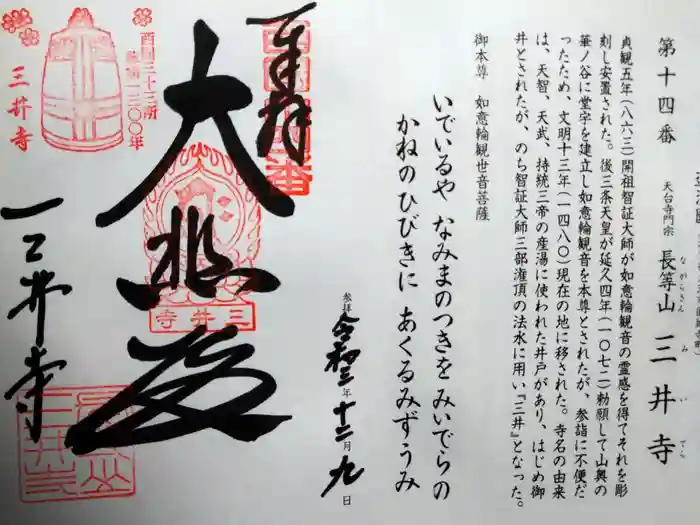 第十四番 天台寺門宗 長等山 三井寺
ながらさん みいでら
貞観五年(八六三)開祖智証大師が如意輪観音の霊感を得てそれを彫
刻し安置された。後三条天皇が延久四年(一〇七二)勅願して山奥の
華ノ谷に堂宇を建立し如意輪観音を本尊とされたが、参詣に不便だ
ったため、文明十三年(一四八〇)現在の地に移された。寺名の由来
は、天智、天武、持統三帝の産湯に使われた井戸があり、はじめ御
井とされたが、のち智証大師三部潅頂の法水に用い『三井』となった。
御本尊 如意輪観世音菩薩
いでいるや なみまのつきを みいでらの
かねのひびきに あくるみずうみ
参拝 令和三年十二月九日
奉拝
大悲殿
三井寺
西国三十三所
三井寺
三井寺